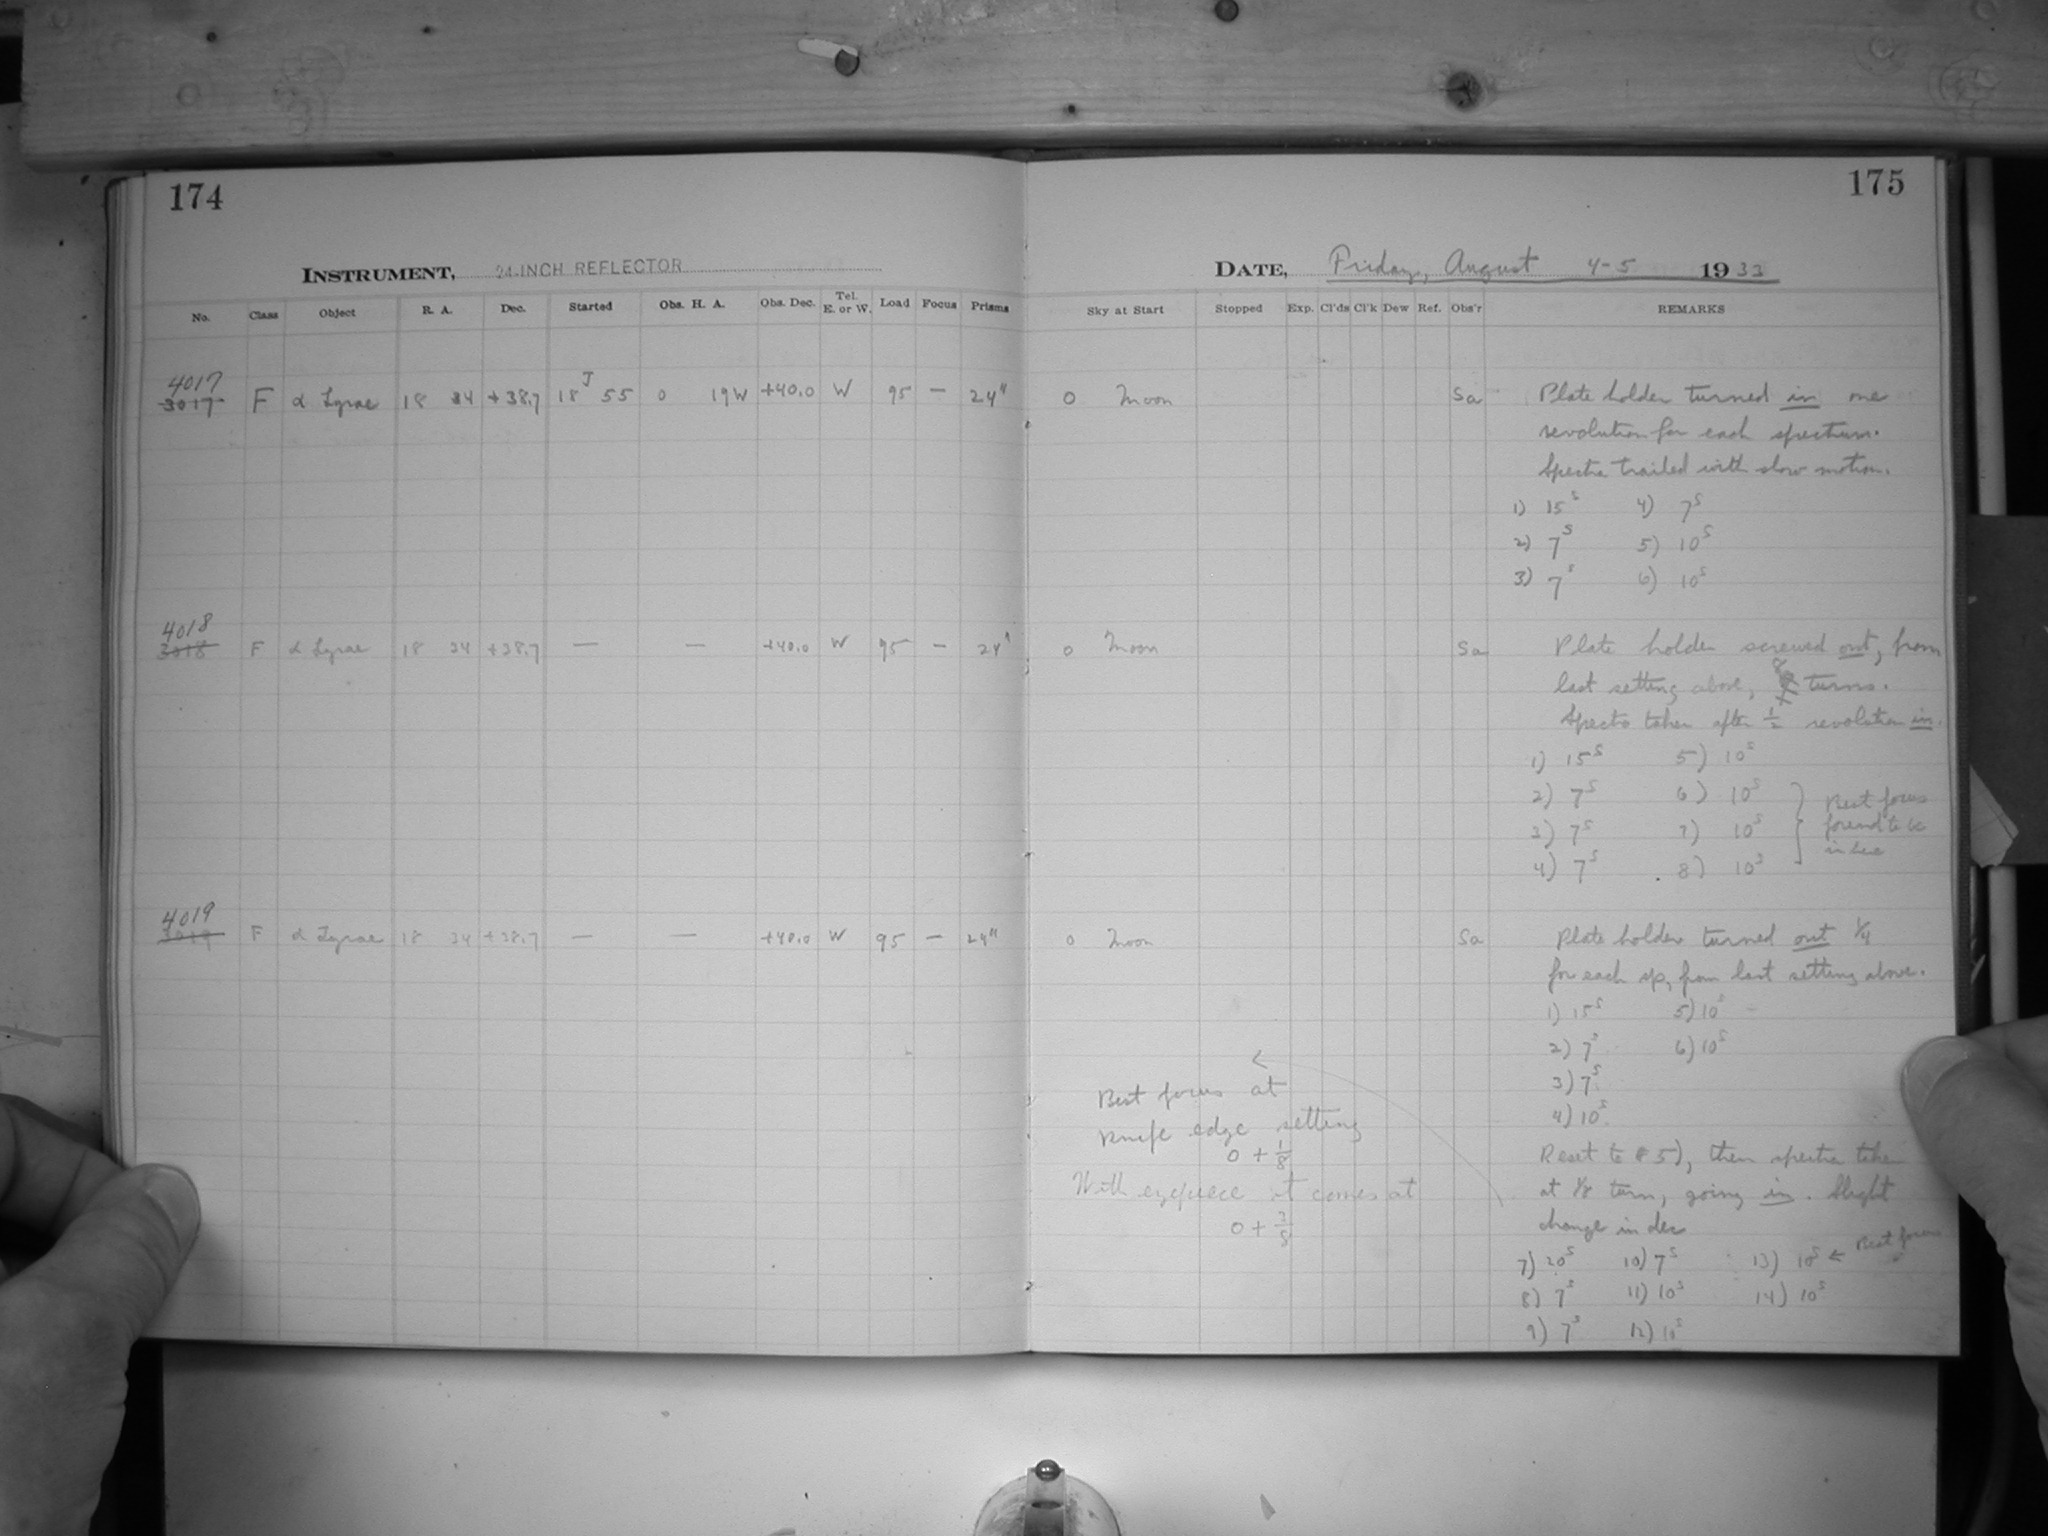 174
175
INSTRUMENT, 24-INCH REFLECTOR
DATE, Friday, August 4-5 1933
No. Class Object R. A. Dec. Started Obs. H. A. Obs. Dec. Tel. E. or W. Load Focus Prisms
Sky at Start Stopped Exp. Cl'ds Cl'k Dew Ref. Obs'r REMARKS
4017
3017 F α Lyrae 18 34 +38.7 18 J 55 0 19W +40.0 W 95 — 24" 0 Moon Sa Plate holder turned in one
revolution for each spectrum.
Spectra trailed with slow motion.
1) 15s 4) 7s
2) 7s 5) 10s
3) 7s 6) 10s
4018
3018 F α Lyrae 18 34 +38.7 — — +40.0 W 95 — 24" 0 Moon Sa Plate holder screwed out, from
last setting above, 8 turns.
Spectra taken after 1/2 revolution in.
1) 15s 5) 10s
2) 7s 6) 10s
3) 7s 7) 10s
4) 7s 8) 10s
Best focus
found to be
in here
4019
3019 F α Lyrae 18 34 +38.7 — — +40.0 W 95 — 24" 0 Moon Sa Plate holder turned out 1/4
for each sp, from last setting above.
1) 15s 5) 10s
2) 7s 6) 10s
3) 7s
4) 10s
Reset to # 5), then spectra taken
at 1/8 turn, going in. Slight
change in dec
7) 20s 10) 7s 13) 10s ← Best focus
8) 7s 11) 10s 14) 10s
9) 7s 12) 10s
Best focus at
knife edge setting
0 + 1/8
With eyepiece it comes at
0 +